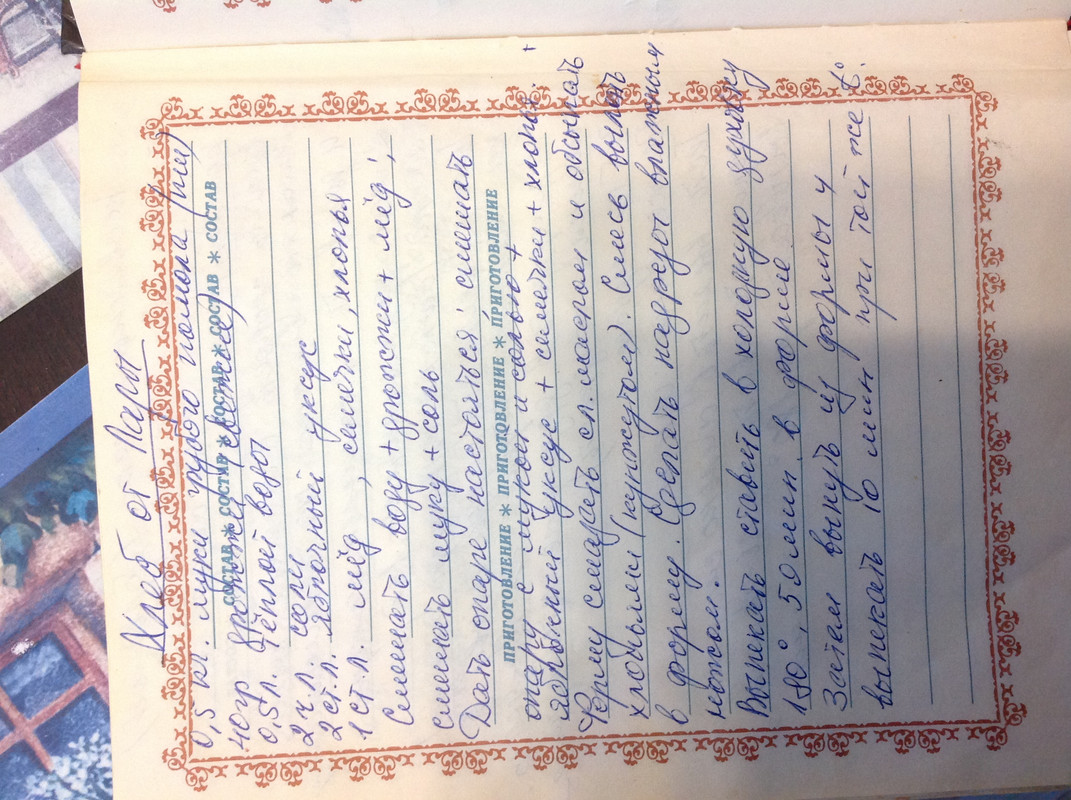 Хлеб от Лары
0,5 кг. муки грубого помола (рж)
СОСТАВ ✻ СОСТАВ ✻ СОСТАВ ✻ СОСТАВ ✻ СОСТАВ
40гр дрожжей (свежие)
0,5л. тёплой воды
2 ч.л. соли
2 ст.л. яблочный уксус
1 ст.л. мёд, семечки, хлопья
Смешать воду + дрожжи + мёд;
смешать муку + соль
Дать опаре настояться; смешать
ПРИГОТОВЛЕНИЕ ✻ ПРИГОТОВЛЕНИЕ ✻ ПРИГОТОВЛЕНИЕ ✻ ПРИГОТОВЛЕНИЕ
опару с мукой и солью +
яблочный уксус + семечки + хлопья +
Форму смазать сл. маслом и обсыпать
хлопьями (кунжутом). Смесь вылить
в форму. Сделать надрезы влажным
ножом.
Выпекать ставить в холодную духовку
180°, 50 мин. в форме
Затем вынуть из формы и
выпекать 10 мин при той же t°.